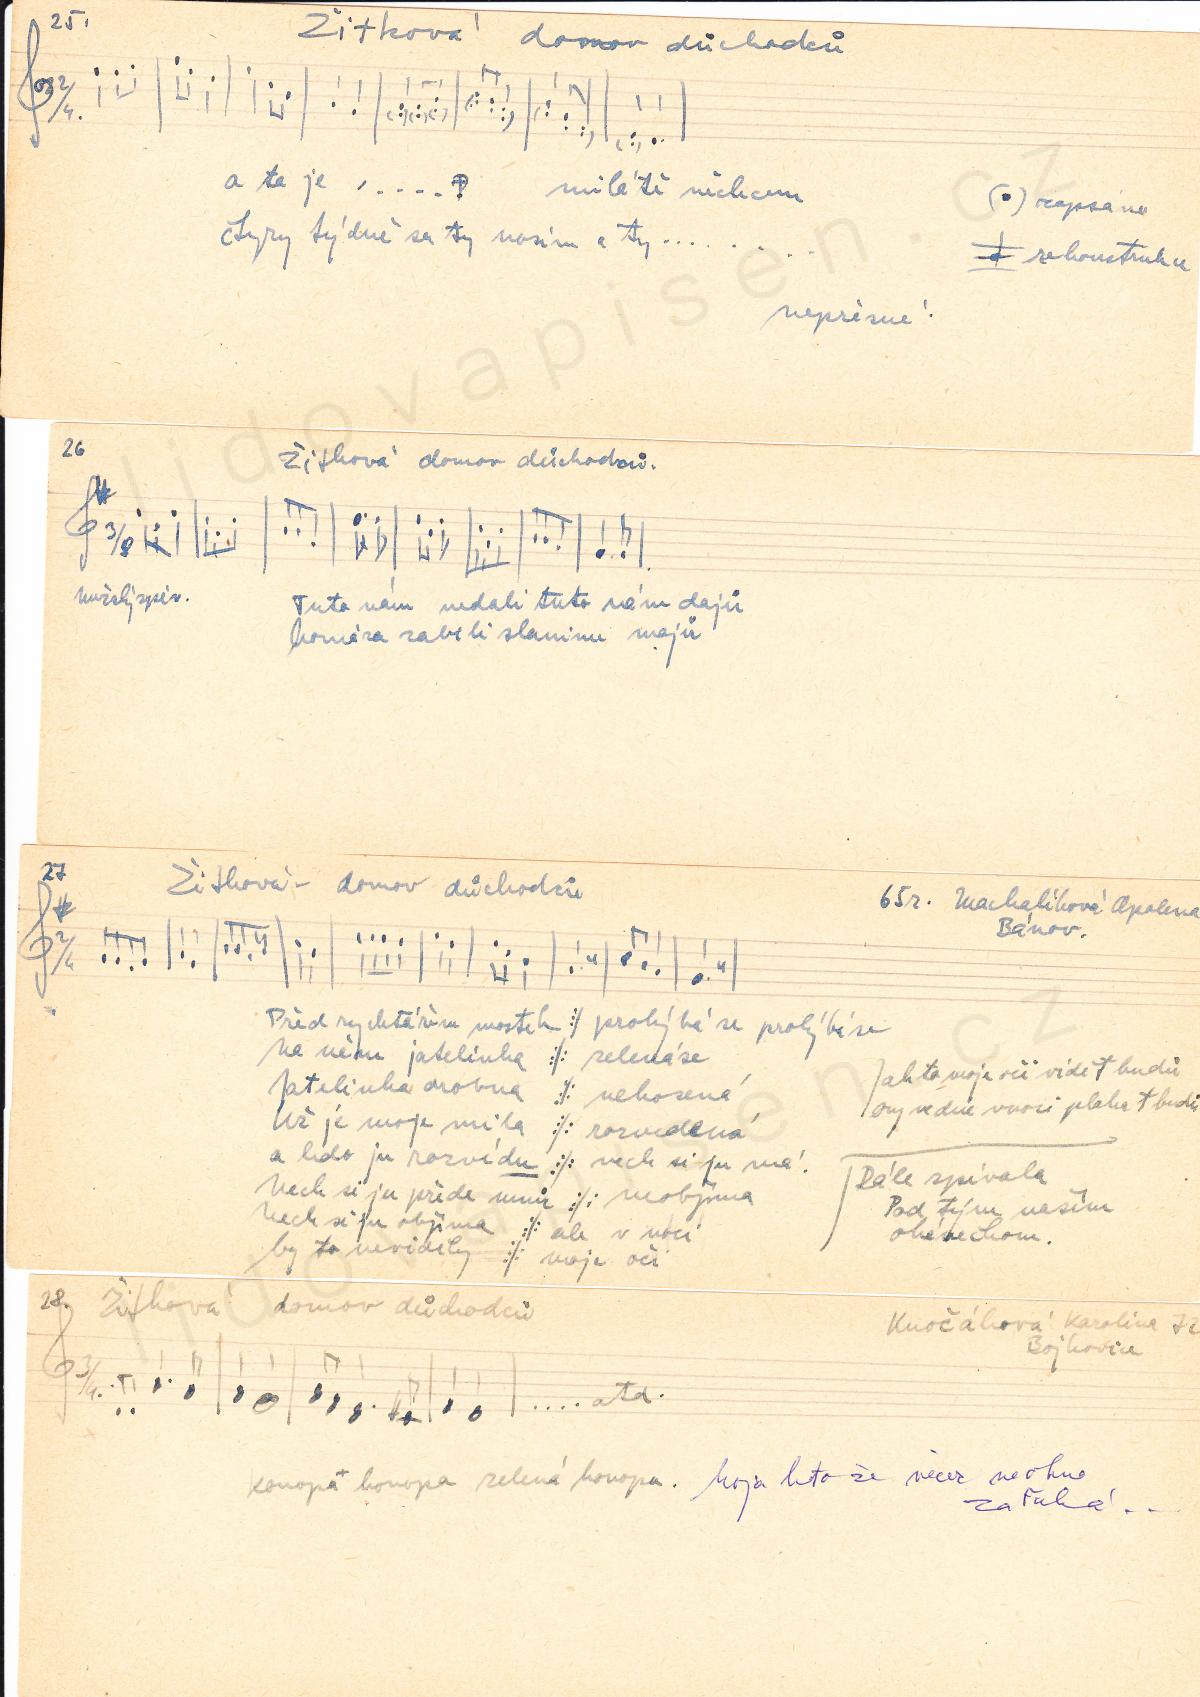 25.
Žitková domov důchodců
2/4.
a ta je , . . . . ?   milé tě nechcem
čtyry týdně sa ty nosím a ty . . . . . . . .
(•) zapsáno
rekonstrukce
nepřesné!
26
Žitková domov důchodců.
3/8
mužský zpěv.
Tuto nám nedali tuto nám dajů
komára zabili slaninu majů
27
Žitková - domov důchodců
65r. Machalíková Apolena
Bánov.
2/4
Před rychtářém mostek :/: prohýbá se prohýbá se
Na něm jatelinka :/: zelená se
Jatelinka drobna :/: nekosená
Už je moje milá :/: rozvedená
a kdo ju rozvédu :/: nech si ju má.
Nech si ju přede mnú :/: neobjíma
Nech si ju objíma :/: ale v noci
by to neviděly :/: moje oči
Jak to moje oči vidět budú
ony ve dne v noci plakat budú
Dále zpívala
Pod tým naším
okénečkom.
28.
Žitková domov důchodců
Knočáková Karolina 72
Bojkovice
3/4.
. . . . atd.
Konopa konopa zelená konopa. koja že večer